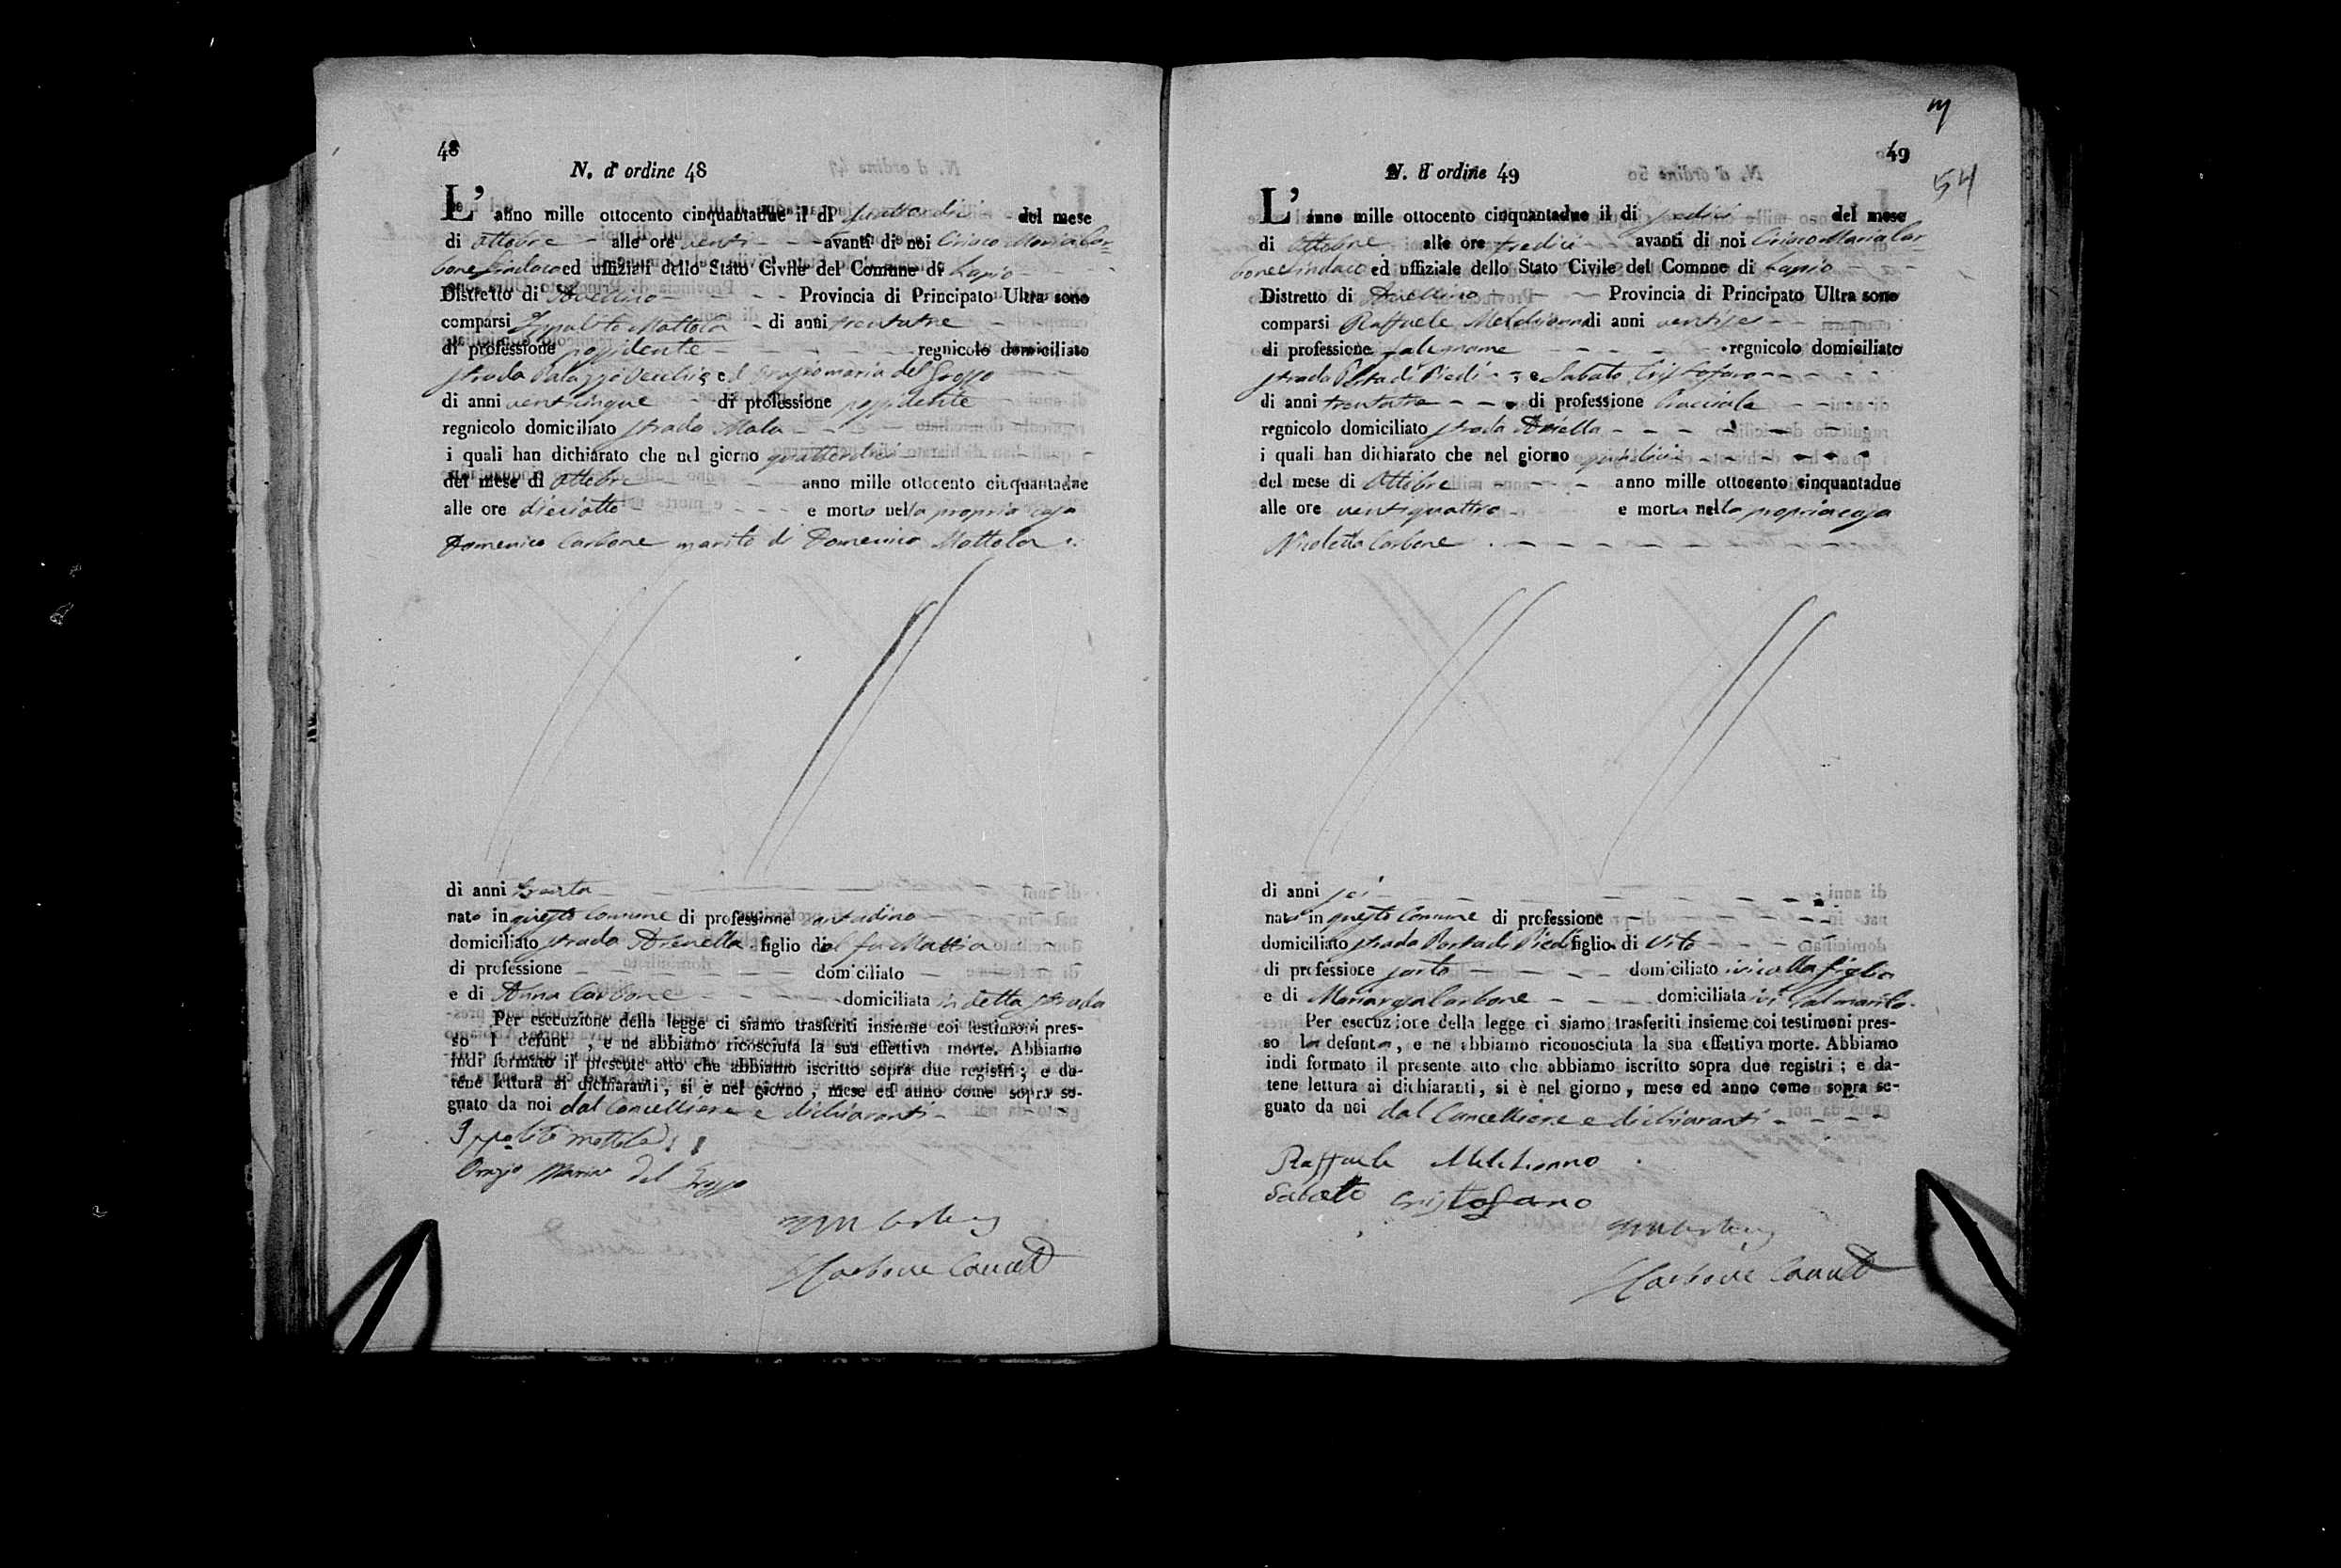 48
N. d' ordine 48
L' anno mille ottocento cinquantadue il dì quattordici del mese
di Ottobre alle ore venti avanti di noi Ciriaco Maria Car=
bone Sindaco ed uffiziali dello Stato Civile del Comune di Lapio
Distretto di Avellino Provincia di Principato Ultra sono
comparsi Ippolito Mottola di anni trentatre
di professione possidente regnicolo domiciliato
strada Palazzo Vecchio, ed Oraziomaria del Grosso
di anni venticinque di professione possidente
regnicolo domiciliato strada Mala
i quali han dichiarato che nel giorno quattordici
del mese di Ottobre anno mille ottocento cinquantadue
alle ore dieciotto e morto nella propria casa
Domenico Carbone marito di Domenica Mottola
di anni trenta
nato in questo Comune di professione contadino
domiciliato strada Arenella figlio del fu Mattia
di professione domiciliato
e di Anna Carbone domiciliata in detta strada
Per esecuzione della legge ci siamo trasferiti insieme coi testimoni pres-
so l defunt , e ne abbiamo ricosciuta la sua effettiva morte. Abbiamo
indi formato il presente atto che abbiamo iscritto sopra due registri ; e da-
tene lettura ai dichiaranti, si è nel giorno, mese ed anno come sopra se-
gnato da noi dal Cancelliere e dichiaranti
Ippolito Mottola
Orazio Maria del Grosso
Carbone Canc
49
54
N. d' ordine 49
L' anno mille ottocento cinquantadue il di sedici del mese
di Ottobre alle ore tredici avanti di noi Ciriaco Maria Car=
bone Sindaco ed uffiziale dello Stato Civile del Comune di Lapio
Distretto di Avellino Provincia di Principato Ultra sono
comparsi Raffaele Melchionna di anni ventisei
di professione falegname regnicolo domiciliato
strada Porta di Piedi , e Sabato Cristofaro
di anni trentatre di professione
regnicolo domiciliato strada
i quali han dichiarato che nel giorno quindici
del mese di Ottobre anno mille ottocento cinquantadue
alle ore ventiquattro e morta nella propria casa
Nicoletta Carbone
di anni sei
nata in questo Comune di professione
domiciliato strada Porta di Piedi figlia di Vito
di professione sarto domiciliato ivi colla figlia
e di Mariangela Carbone domiciliata ivi col marito
Per esecuzione della legge ci siamo trasferiti insieme coi testimoni pres-
so la defunta, e ne abbiamo riconosciuta la sua effettiva morte. Abbiamo
indi formato il presente atto che abbiamo iscritto sopra due registri ; e da-
tene lettura ai dichiaranti, si è nel giorno, mese ed anno come sopra se-
gnato da noi dal Cancelliere e dichiaranti
Raffaele Melchionno
Sabato Cristofano
Carbone Canc